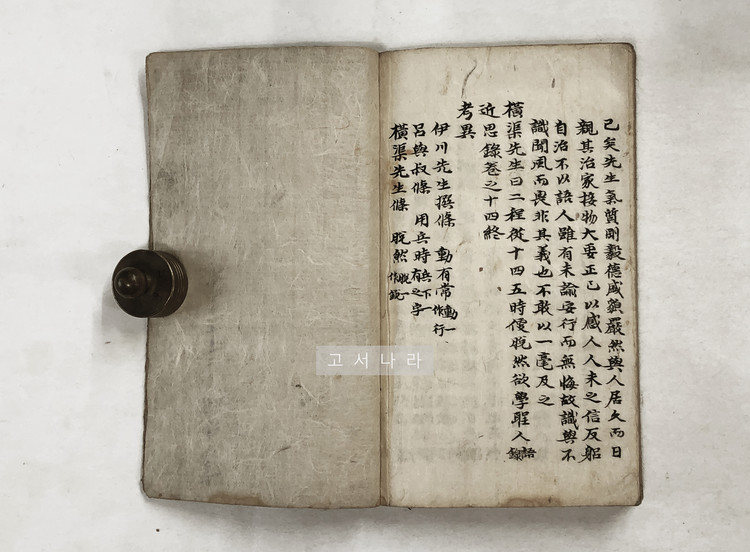 已矣先生氣質剛毅德盛䫉嚴然與人居久而日
親其治家接物大要正己以感人人未之信反躬
自治不以語人雖有未諭安行而無悔故識與不
識聞風而畏非其義也不敢以一毫及之
橫渠先生曰二程從十四五時便脫然欲學聖人 語錄
近思錄卷之十四終
考異
伊川先生撰條 動有常 動一作行
呂與叔條 用兵時 兵下一有之字
橫渠先生條 脫然 脫一作銳
고서나라